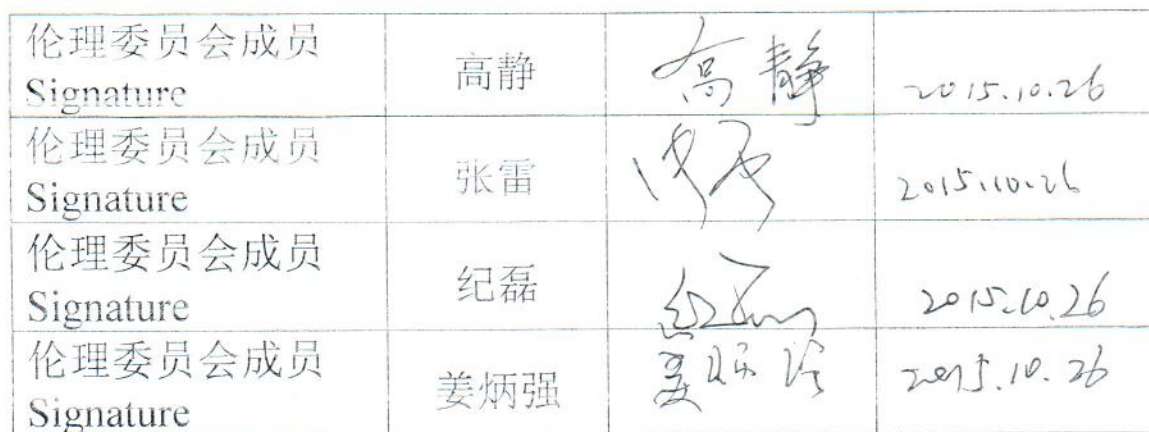 伦理委员会成员
Signature
高静
高静
2015.10.26
伦理委员会成员
Signature
张雷
2015.10.26
伦理委员会成员
Signature
纪磊
纪磊
2015.10.26
伦理委员会成员
Signature
姜炳强
姜炳强
2015.10.26